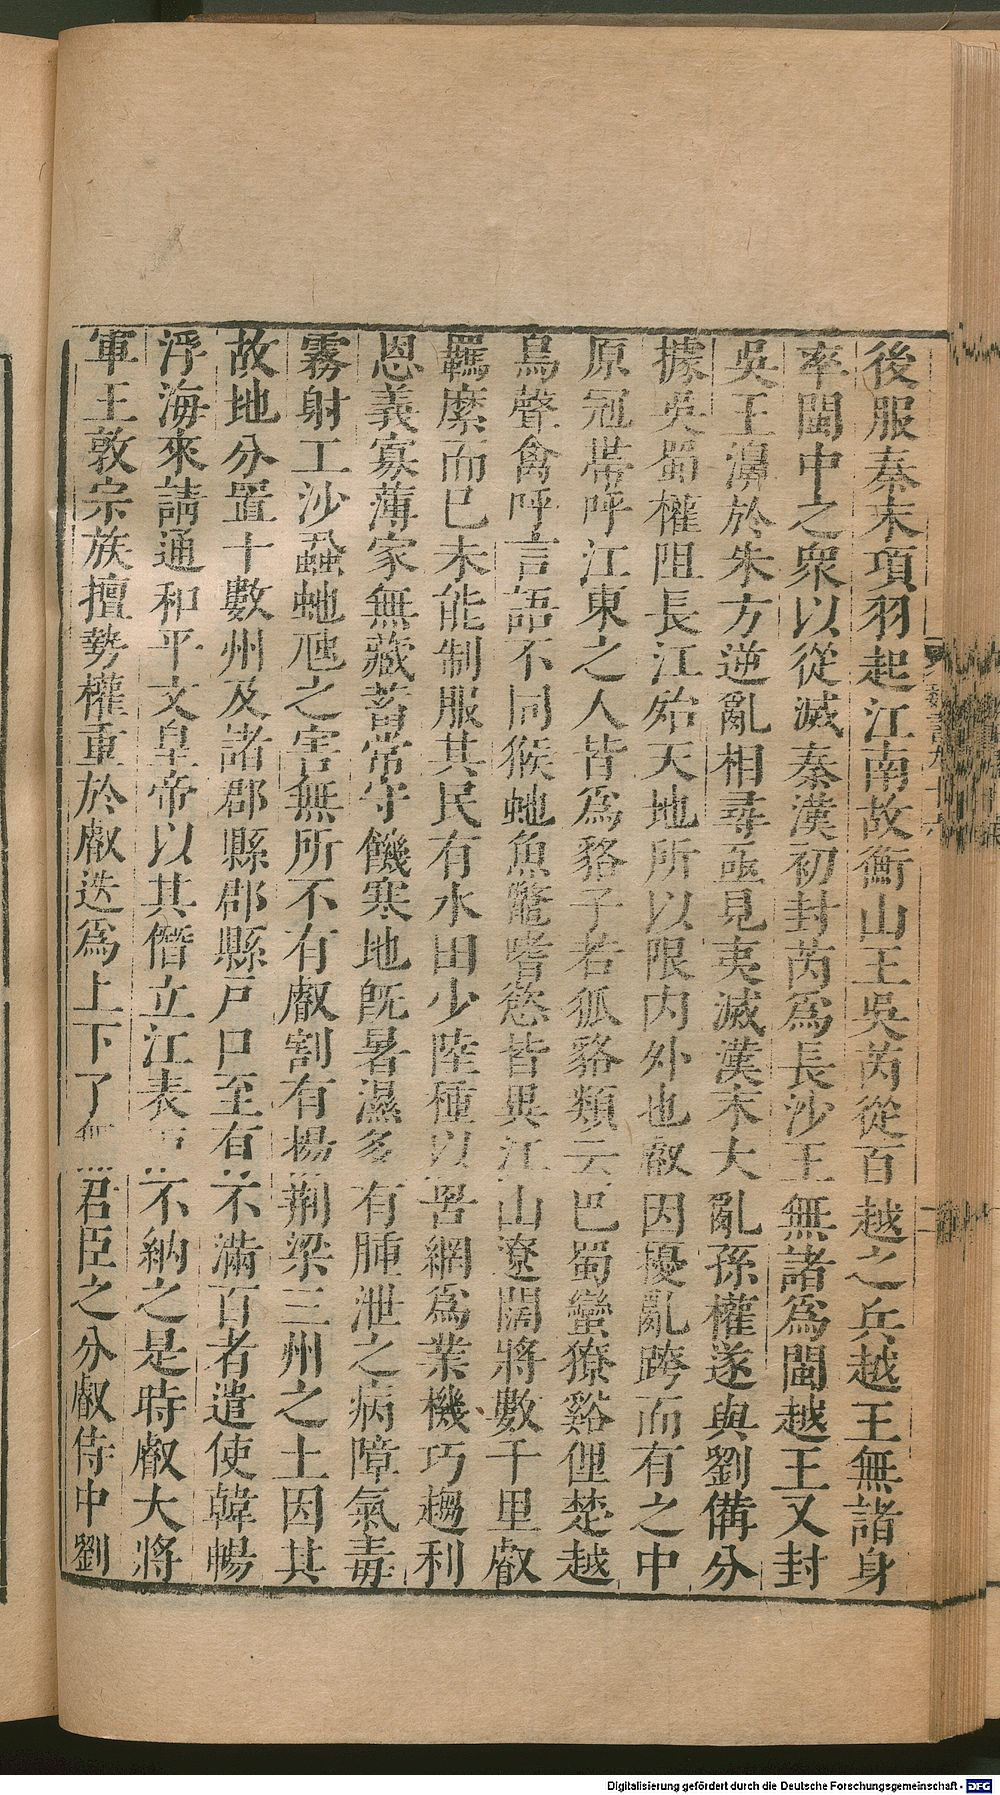 後服秦末項羽起江南故衡山王吳芮從百越之兵越王無諸身
率閩中之衆以從滅秦漢初封芮爲長沙王無諸爲閩越王又封
吳王濞於朱方逆亂相尋亟見夷滅漢末大亂孫權遂與劉備分
據吳蜀權阻長江殆天地所以限內外也叡因擾亂跨而有之中
原冠帶呼江東之人皆爲貉子若狐貉類云巴蜀蠻獠谿俚楚越
鳥聲禽呼言語不同猴虵魚鼈嗜慾皆異江山遼闊將數千里叡
羈縻而已未能制服其民有水田少陸種以罟網爲業機巧趨利
恩義寡薄家無藏蓄常守饑寒地既暑濕多有腫泄之病障氣毒
霧射工沙蝨虵虺之害無所不有叡割有揚荆梁三州之土因其
故地分置十數州及諸郡縣郡縣戶口至有不滿百者遣使韓暢
浮海來請通和平文皇帝以其僭立江表 不納之是時叡大將
軍王敦宗族擅勢權重於叡迭爲上下了無君臣之分叡侍中劉
魏書九十六
Digitalisierung gefördert durch die Deutsche Forschungsgemeinschaft - DFG